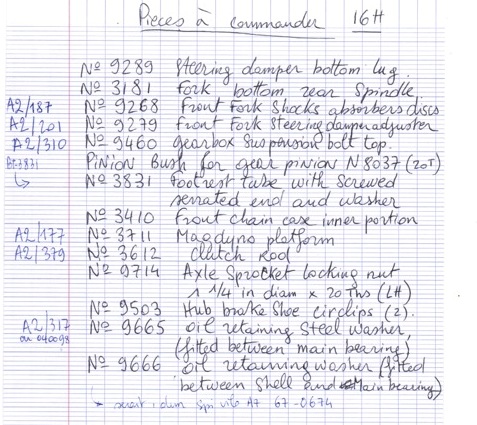 Pieces à commander 16H
Nº 9289 Steering damper bottom lug.
Nº 3181 Fork bottom rear Spindle.
A2/187 Nº 9268 Front Fork Shocks absorbers discs
A2/201 Nº 9279 Front Fork Steering damper adjuster
A2/310 Nº 9460 gearbox Suspension bolt top.
PiNiON Bush for gear pinion N 8037 (20T)
Nº 3831 Footrest tube with screwed
serrated end and washer
Nº 3410 Front chain case inner portion
A2/177 Nº 3711 Magdyno platform
A2/379 Nº 3612 Clutch Rod
Nº 9714 Axle Sprocket locking nut
1 1/4 in diam x 20 Ths (LH)
Nº 9503 Hub brake Shoe circlips (2).
A2/317 Nº 9665 oil retaining Steel washer,
ou 040098 (fitted between main bearing)
Nº 9666 oil retaining washer (fitted
between Shell and Main bearing)
A7 67-0674